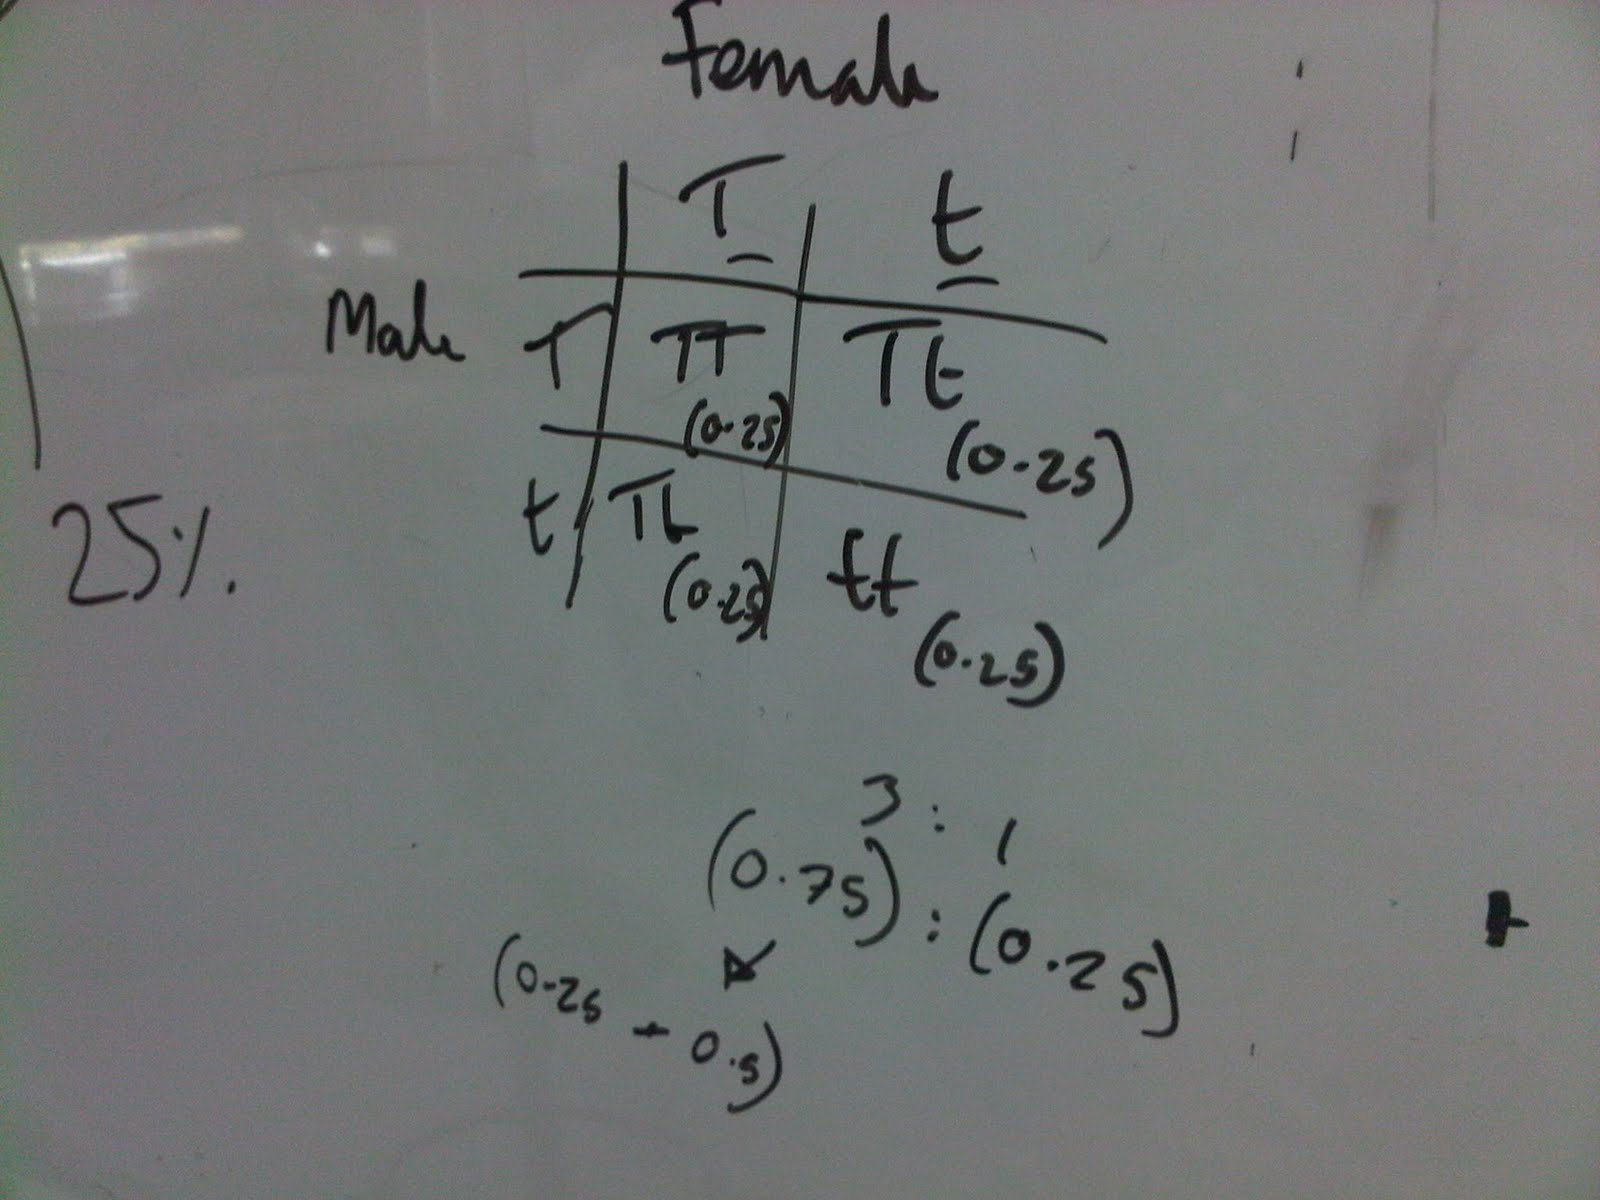 Female
T t
Male T TT Tt
(0.25) (0.25)
t Tt tt
(0.25) (0.25)
25%.
3 : 1
(0.75) : (0.25)
(0.25 + 0.5)